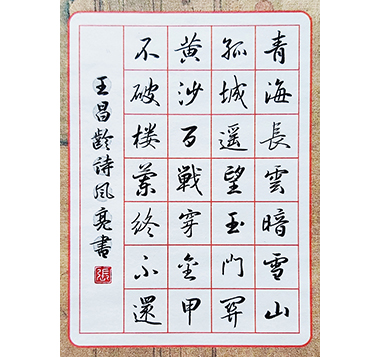 青海長雲暗雪山
孤城遥望玉門關
黄沙百戰穿金甲
不破楼蘭終不還
王昌齡詩風亮書
張